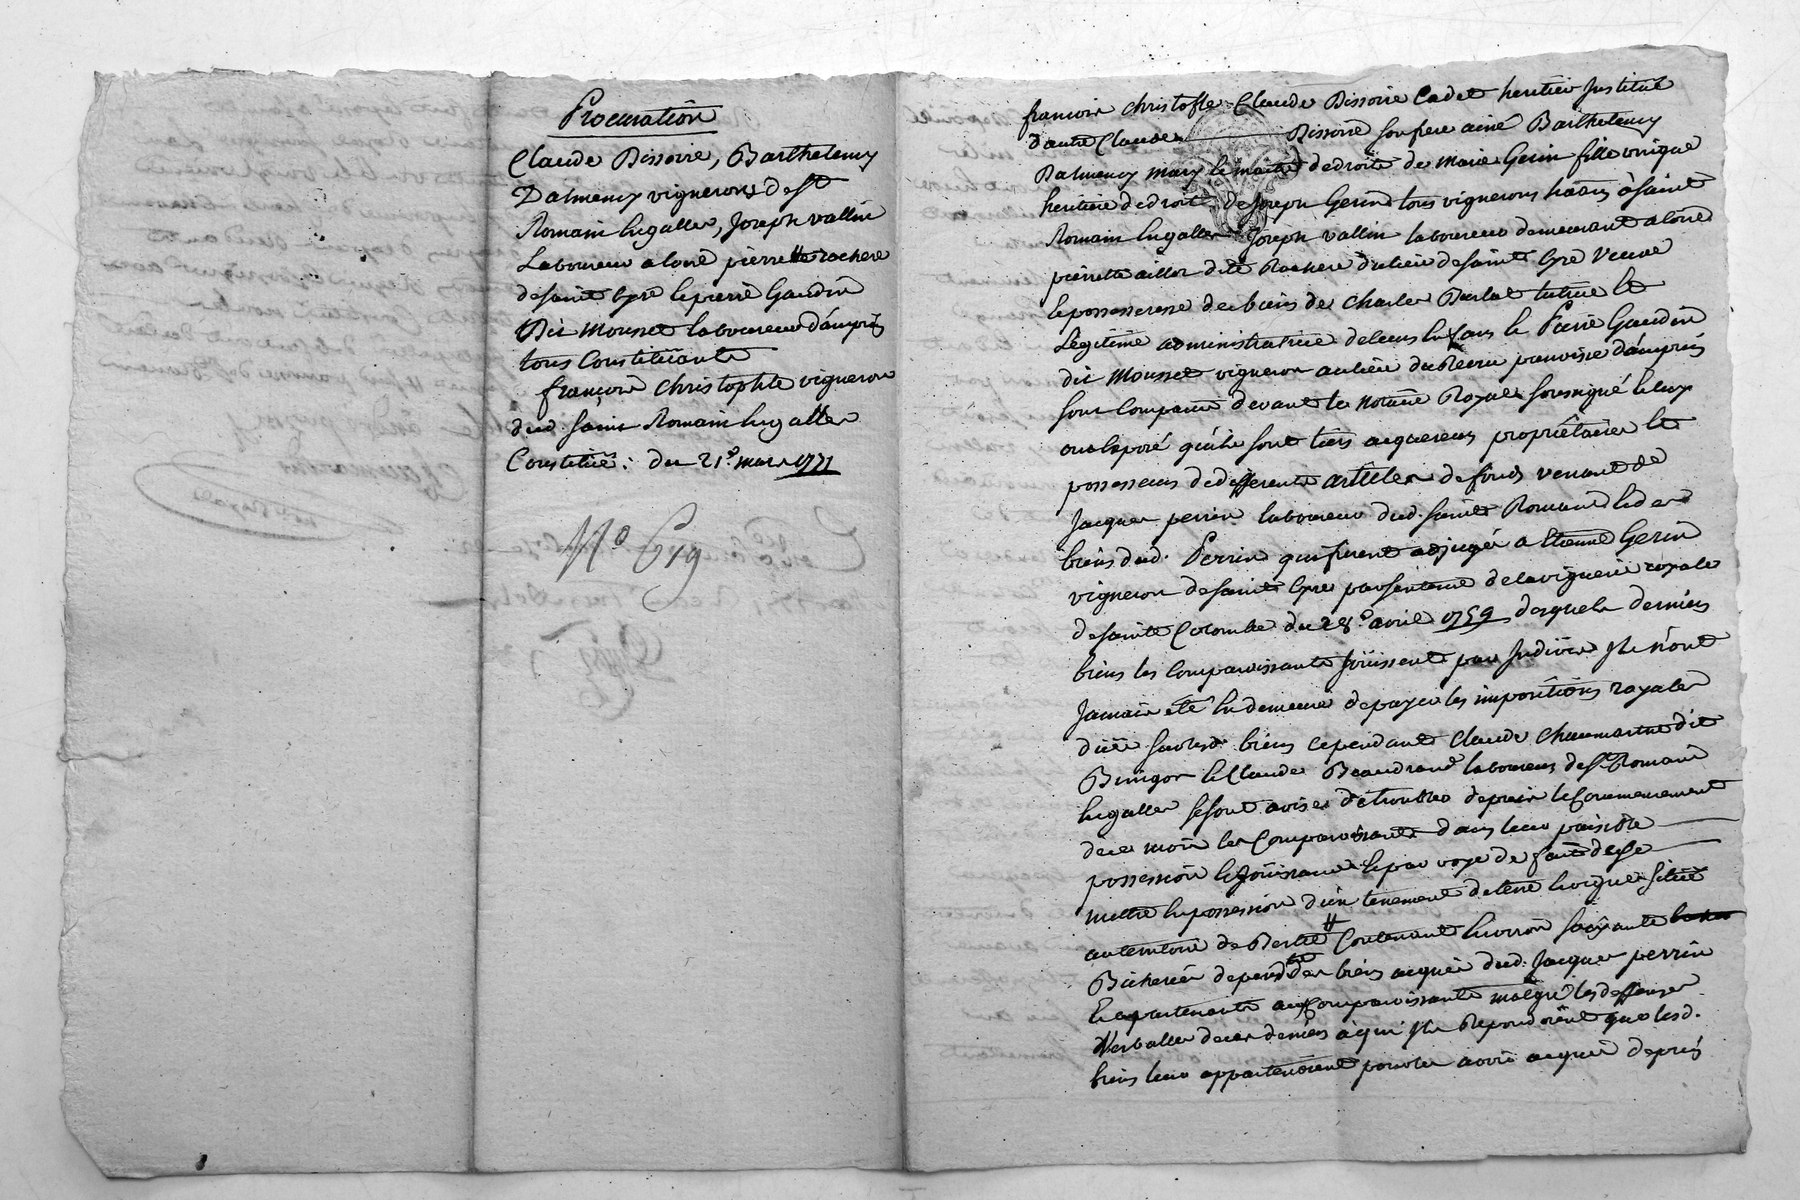 Procuration
Claude Bissoire, Barthelemy
Dalmency vignerons de st
Romain en galler, Joseph vallin
Laboureur a loire pierrette rochere
de saint Cyre et pierre Gaudin
Dit mousset laboureur d'ampuis
tous Constituants
françois christophle vigneron
dud. saint Romain en galler
Constitué: du 21e mars 1771
No 619
françois christofle Claude Bissoire Cadet heritier Institué
d'autre Claude Bissoire son frere ainé Barthelemy
Dalmency mary et maitre des droits de marie Gerin fille unique
heritiere de droit de Joseph Gerin tous vignerons hab. à saint
Romain en galler Joseph vallin laboureur demeurant a loire
pierrette aillor dite Rochere du lieu de saint Cyre Veuve
et possesseresse des biens de Charles Barlet tutrice et
Legitime administratrice de leurs enfans et Pierre Gaudin
dit Mousset vigneron au lieu du paroisse d'ampuis
sont Comparus devant le notaire Royal soussigné lesquels
ont exposé qu'ils sont tiers acquereurs proprietaires et
possesseurs de differents articles de fonds venant de
Jacques perrin laboureur dud. saint Romain et des
biens dud. Perrin qui furent adjugés a Etienne Gerin
vigneron de saint Cyre par sentence de la viguerie royale
de sainte Colombe du 28e avril 1759 desquels derniers
biens les Comparoissants Joüissent par Indivis Ils n'ont
Jamais eté en demeure de payer les impositions royales
düe sur lesd. biens cependant Claude chaumartin dit
Bringon et Claude Beaudrand laboureurs de st Romain
en galler se sont avisés de troubler depuis le Commencement
de ce mois les Comparoissants dans leur paisible
possession et Joüissance et par voye de fait de se
mettre en possession d'un tenement de terre et vigne situé
au territoire de Bertet Contenant environ soixante
Bicherées dependtes des biens acquis dud. Jacques perrin
Et apartenants aux Comparoissants malgré les deffenses
Verballes de ces derniers a qui Ils Repondoient que lesd.
biens leur appartenoient pour les avoir acquis depuis